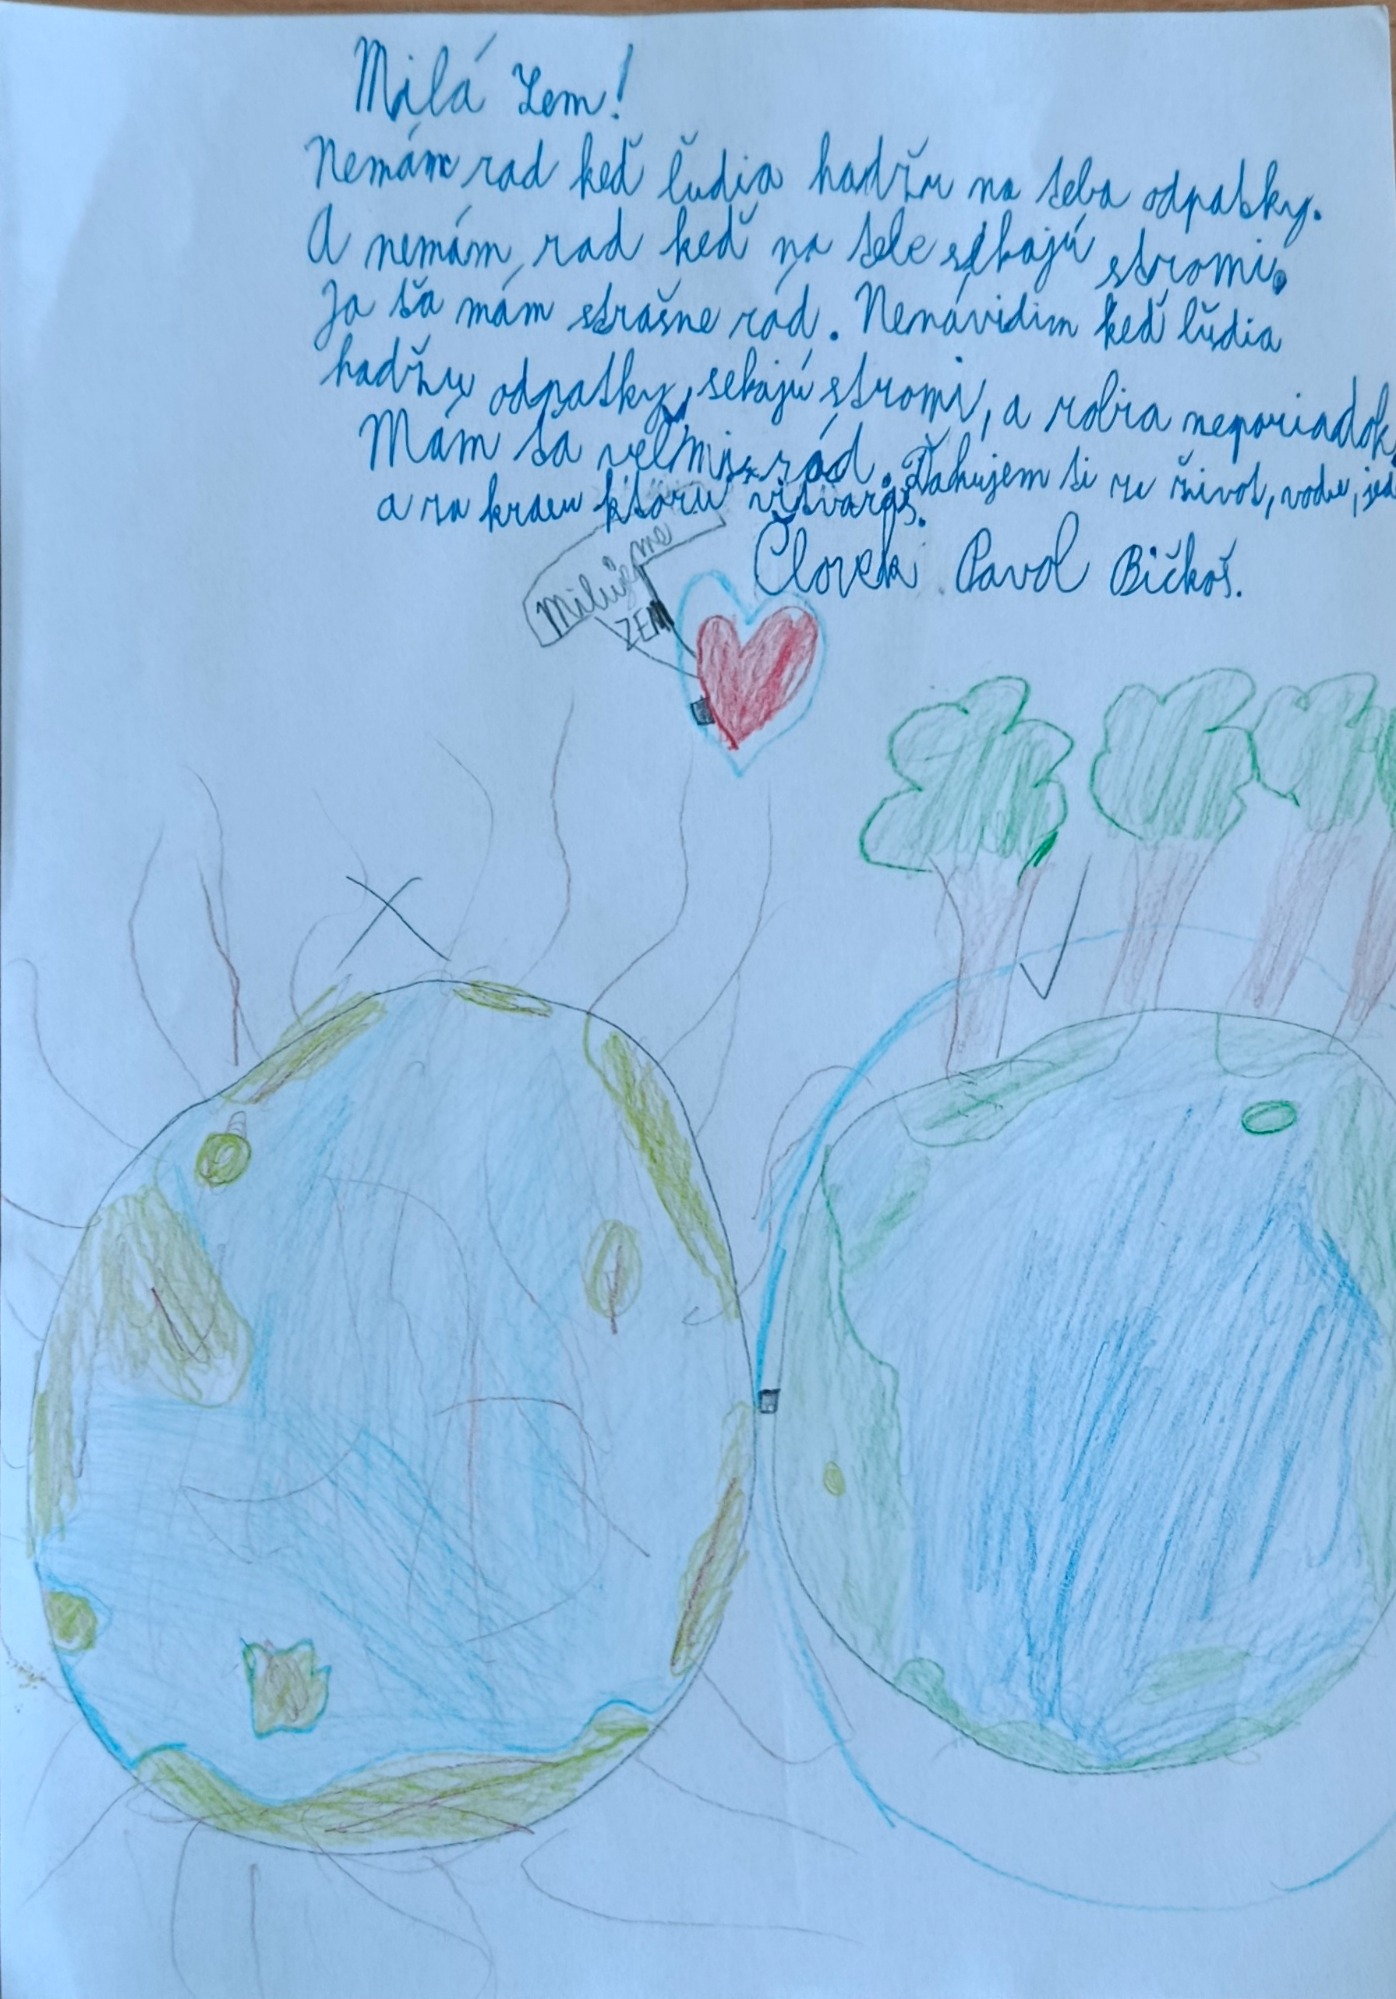 Milá Zem!
Nemám rad keď ľudia hadžu na teba odpatky.
A nemám rad keď na tebe sekajú stromi.
Ja ťa mám strašne rád. Nenávidim keď ľudia
hadžu odpatky, sekajú stromi, a robia neporiadok.
Mám ťa veľmi rád. Ďakujem ti za život, vodu,
a za krasu ktoru vitvaraš.
Človek Pavol Bičkoš.
Milujeme
ZEM